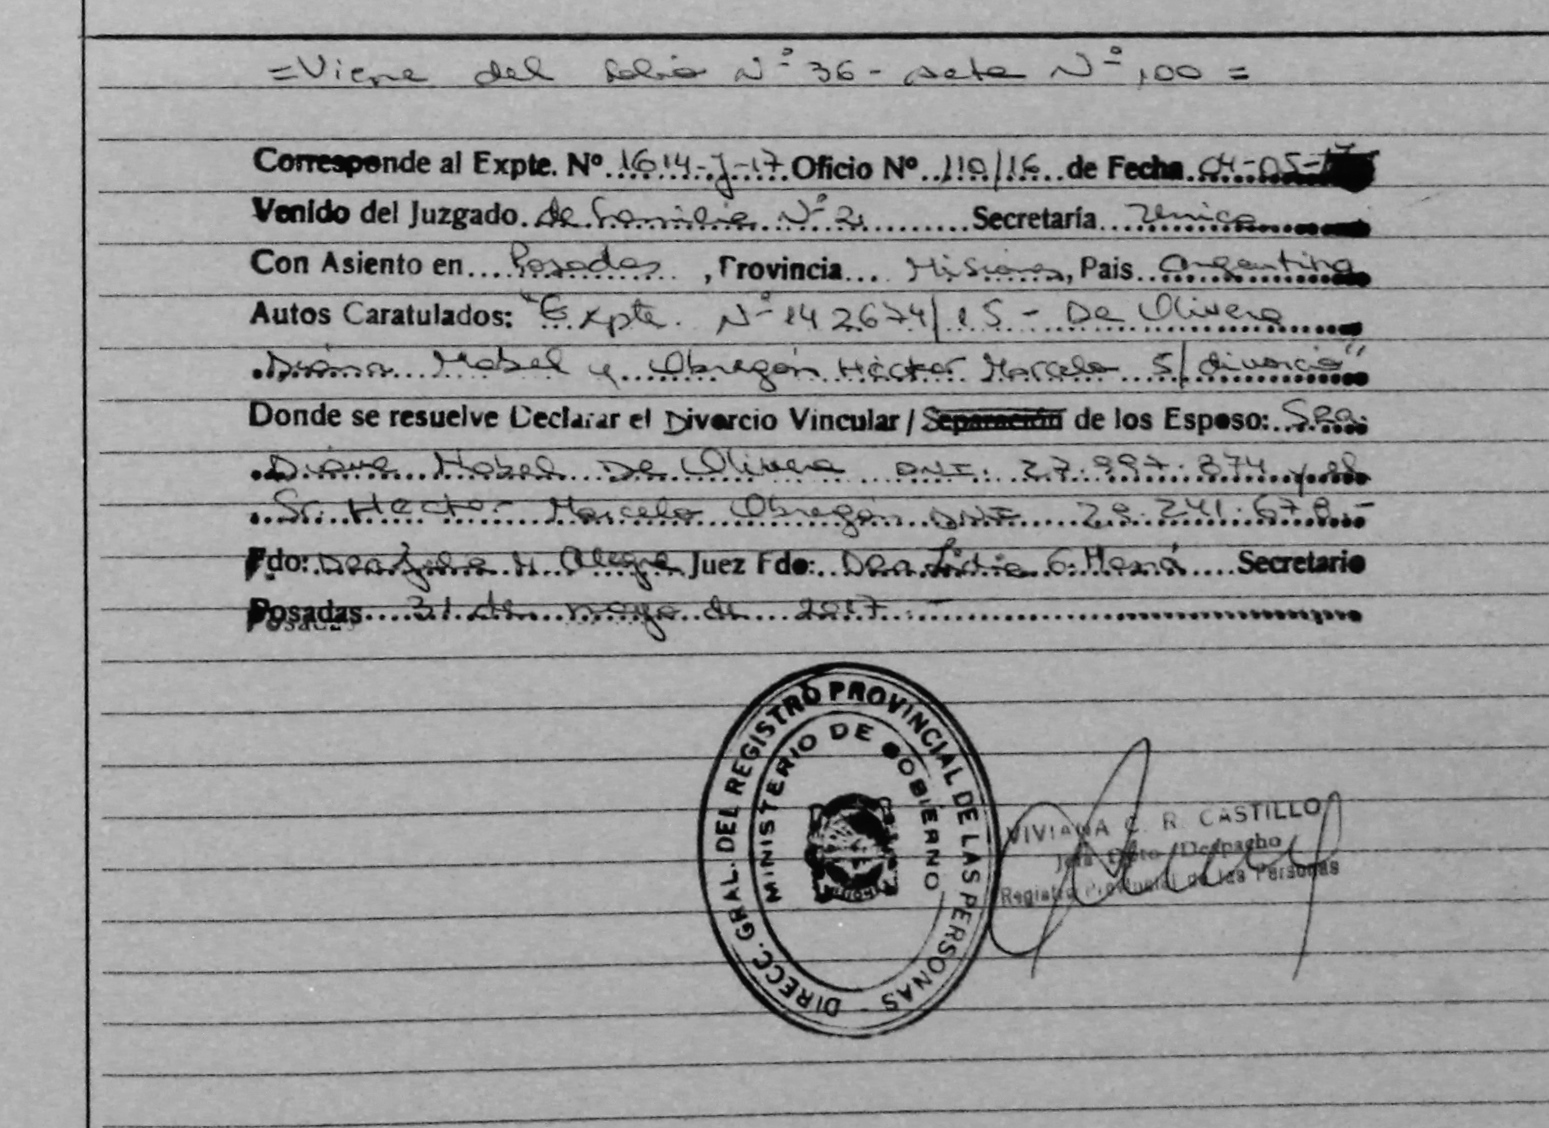 =Viene del folio Nº 36 - acta Nº 100 =
Corresponde al Expte. Nº 1614-J-17 Oficio Nº 110/16 de Fecha 04-05-17
Venido del Juzgado de Familia Nº 2 Secretaría Unica
Con Asiento en Posadas, Provincia Misiones, Pais Argentina
Autos Caratulados: "Expte. Nº 142674/15 - De Olivera
Diana Mabel y Obregón Héctor Marcelo S/divorcio"
Donde se resuelve Declarar el Divorcio Vincular / Separación de los Esposo: Sra.
Diana Mabel De Olivera DNI. 27.997.374 y el
Sr. Hector Marcelo Obregón DNI 29.241.678.-
Fdo: Dra Julia M. Alegre Juez Fdo: Dra Lidia G. Secretario
Posadas 31 de mayo de 2017.-
DIRECC. GRAL. DEL REGISTRO PROVINCIAL DE LAS PERSONAS
MINISTERIO DE GOBIERNO
VIVIANA C. R. CASTILLO
Jefa Dpto Despacho
Registro Provincial de las Personas